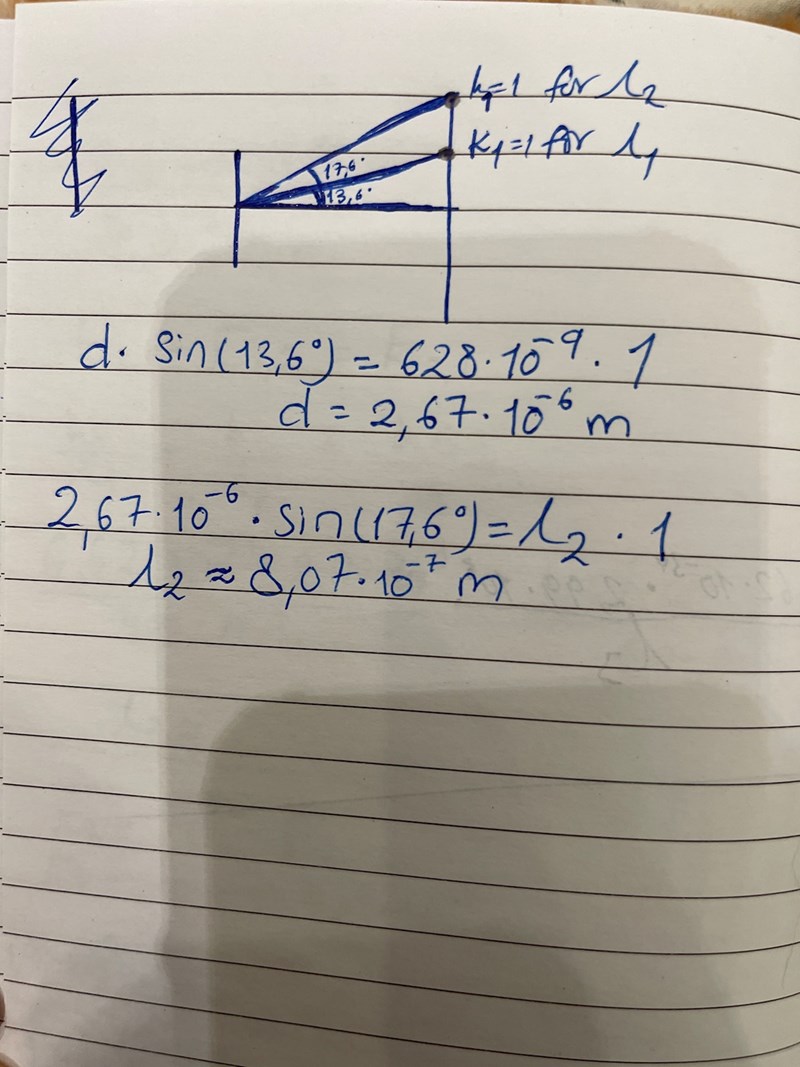 k₁=1 for λ₂
K₁=1 for λ₁
17,6°
13,6°
d· Sin(13,6°) = 628·10⁻⁹·1
d = 2,67·10⁻⁶ m
2,67·10⁻⁶·sin(17,6°)=λ₂·1
λ₂ ≈ 8,07·10⁻⁷ m